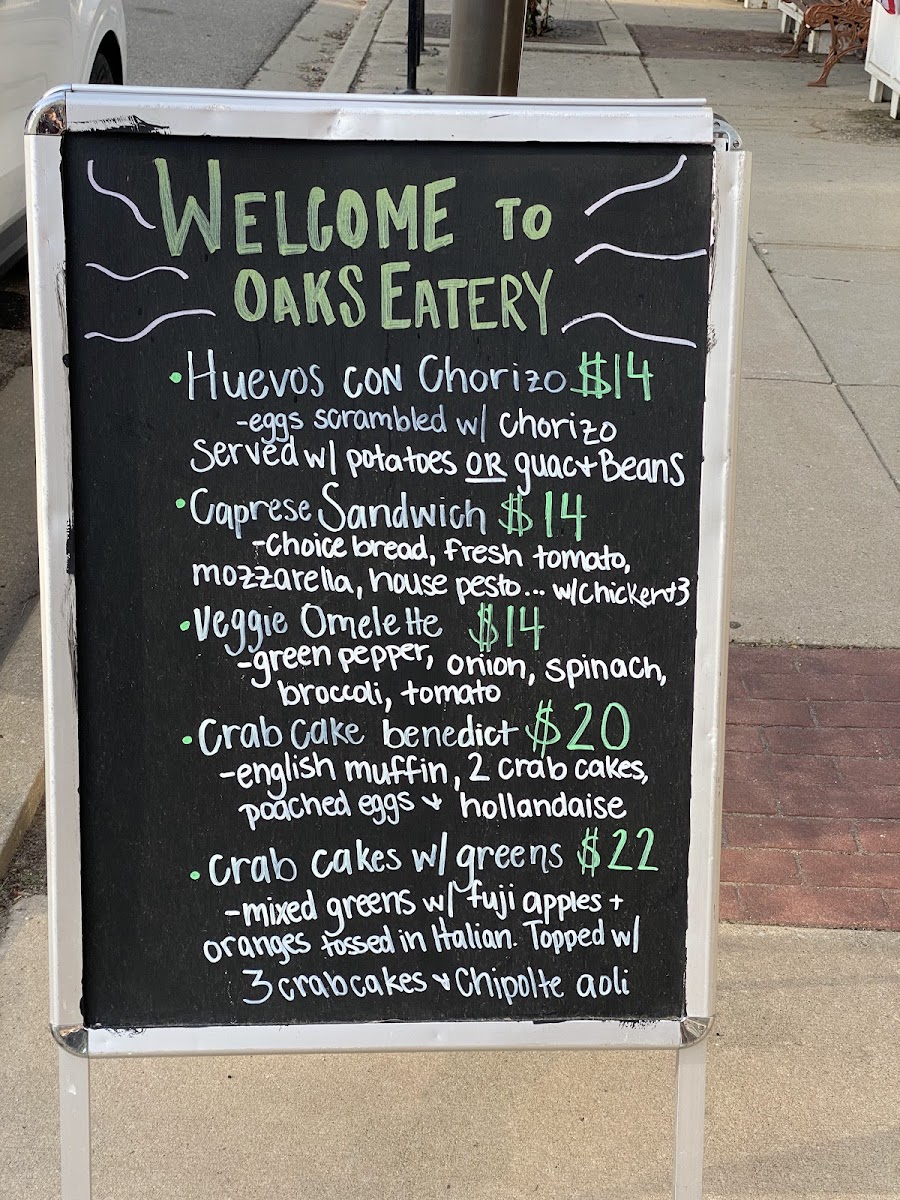 WELCOME TO
OAKS EATERY
• Huevos con Chorizo $14
-eggs scrambled w/ chorizo
Served w/ potatoes OR guac + Beans
• Caprese Sandwich $14
-choice bread, fresh tomato,
mozzarella, house pesto... w/chicken+3
• Veggie Omelette $14
-green pepper, onion, spinach,
broccoli, tomato
• Crab Cake benedict $20
-english muffin, 2 crab cakes,
poached eggs + hollandaise
• Crab cakes w/ greens $22
-mixed greens w/ fuji apples +
oranges tossed in Italian. Topped w/
3 crabcakes + Chipolte aoli